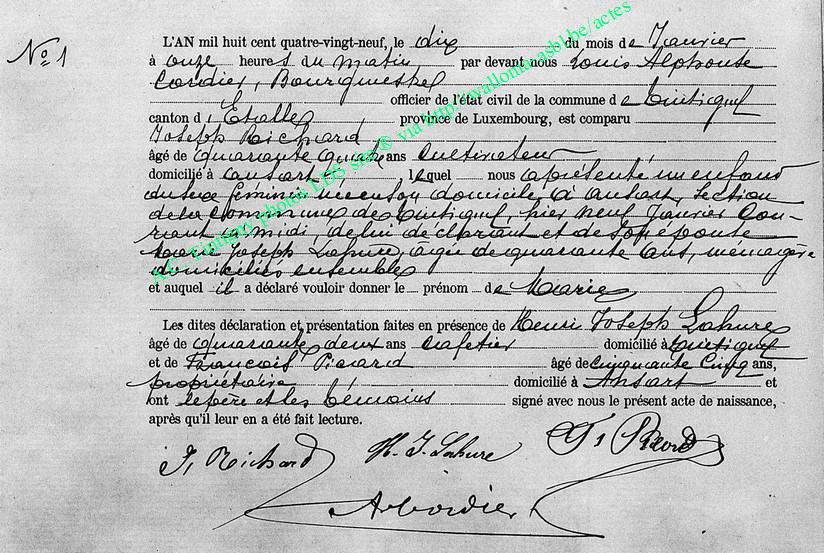 No 1
L'AN mil huit cent quatre-vingt-neuf, le dix du mois de Janvier
à onze heures du matin, par devant nous Louis Alphonse
Cordier, Bourgmestre
officier de l'état civil de la commune de Tintigny
canton d' Etalle province de Luxembourg, est comparu
Joseph Richard
âgé de quarante ans cultivateur
domicilié à Ansart, lequel nous a présenté un enfant
du sexe féminin né en son domicile à Ansart, section
de la commune de Tintigny, hier neuf Janvier Cou-
rant à midi, de lui déclarant et de son épouse
Marie Joseph Lahure, âgée de quarante ans, ménagère
domiciliés ensemble
et auquel il a déclaré vouloir donner le prénom de Marie
Les dites déclaration et présentation faites en présence de Henri Joseph Lahure
âgé de quarante deux ans cafetier domicilié à Tintigny
et de François Picard âgé de cinquante cinq ans,
propriétaire domicilié à Ansart et
ont le père et les témoins signé avec nous le présent acte de naissance,
après qu'il leur en a été fait lecture.
J. Richard H. J. Lahure F. Picard
A. Cordier
AC Tintigny photos LDS sur ® via http://wallonia-asbl.be/actes